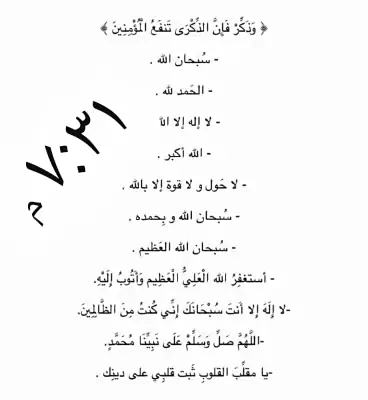 ﴿ وَذَكِّرْ فَإِنَّ الذِّكْرَى تَنفَعُ الْمُؤْمِنِينَ ﴾
- سُبحان الله .
- الحَمد لله .
- لا إله إلا الله
- الله أكبر .
- لا حَول و لا قوة إلا بالله .
- سُبحان الله و بِحمده .
- سُبحان الله العَظيم .
- أستغفِرُ الله الْعَلِيُّ الْعَظِيم وَأَتُوبُ إِلَيْهِ.
-لا إِلَهَ إلا أَنتَ سُبْحَانَكَ إِنِّي كُنتُ مِنَ الظَّالِمِينَ.
-اللَّهُمَّ صَلِّ وَسَلِّمْ عَلَى نَبِيِّنَا مُحَمَّدٍ.
-يا مقلِّبَ القلوبِ ثَبت قلبِي على دينِك .
٧:٣١
م